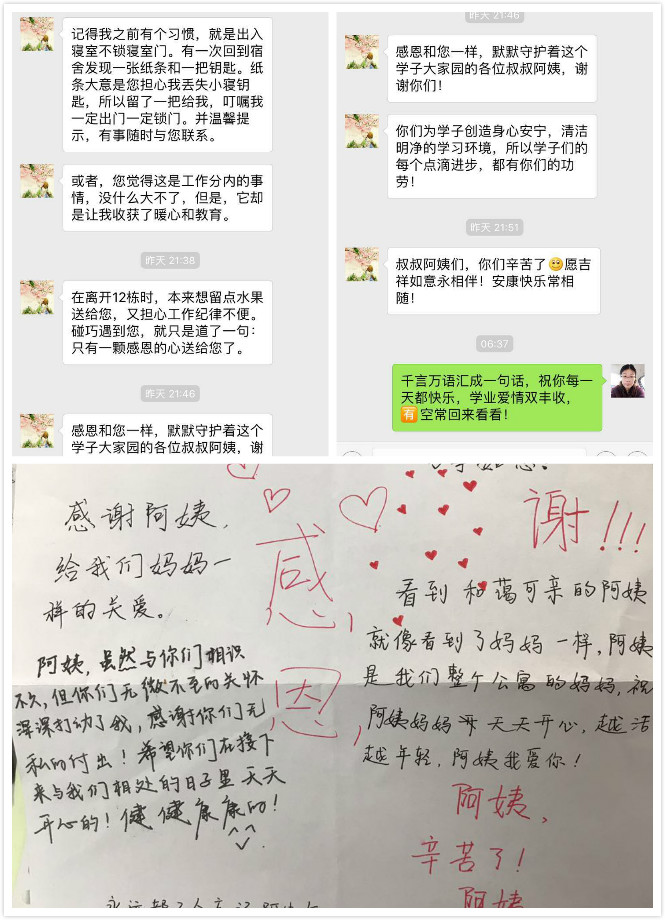 记得我之前有个习惯，就是出入
寝室不锁寝室门。有一次回到宿
舍发现一张纸条和一把钥匙。纸
条大意是您担心我丢失小寝钥
匙，所以留了一把给我，叮嘱我
一定出门一定锁门。并温馨提
示，有事随时与您联系。
或者，您觉得这是工作分内的事
情，没什么大不了，但是，它却
是让我收获了暖心和教育。
昨天 21:38
在离开12栋时，本来想留点水果
送给您，又担心工作纪律不便。
碰巧遇到您，就只是道了一句：
只有一颗感恩的心送给您了。
昨天 21:46
感恩和您一样，默默守护着这个
学子大家园的各位叔叔阿姨，谢
昨天 21:46
感恩和您一样，默默守护着这个
学子大家园的各位叔叔阿姨，谢
谢你们！
你们为学子创造身心安宁，清洁
明净的学习环境，所以学子们的
每个点滴进步，都有你们的功
劳！
昨天 21:51
叔叔阿姨们，你们辛苦了😊愿吉
祥如意永相伴！安康快乐常相
随！
06:37
千言万语汇成一句话，祝你每一
天都快乐，学业爱情双丰收，
🈶空常回来看看！
感谢阿姨，
给我们妈妈一
样的关爱。
阿姨，虽然与你们相识
不久，但你们无微不至的关怀
深深打动了我，感谢你们无
私的付出！希望你们在接下
来与我们相处的日子里天天
开心的！健健康康的！^^
感
恩
谢!!!
看到和蔼可亲的阿姨
就像看到了妈妈一样，阿姨
是我们整个公寓的妈妈，祝
阿姨妈妈天天开心，越活
越年轻，阿姨我爱你！
阿姨，
辛苦了！
阿姨